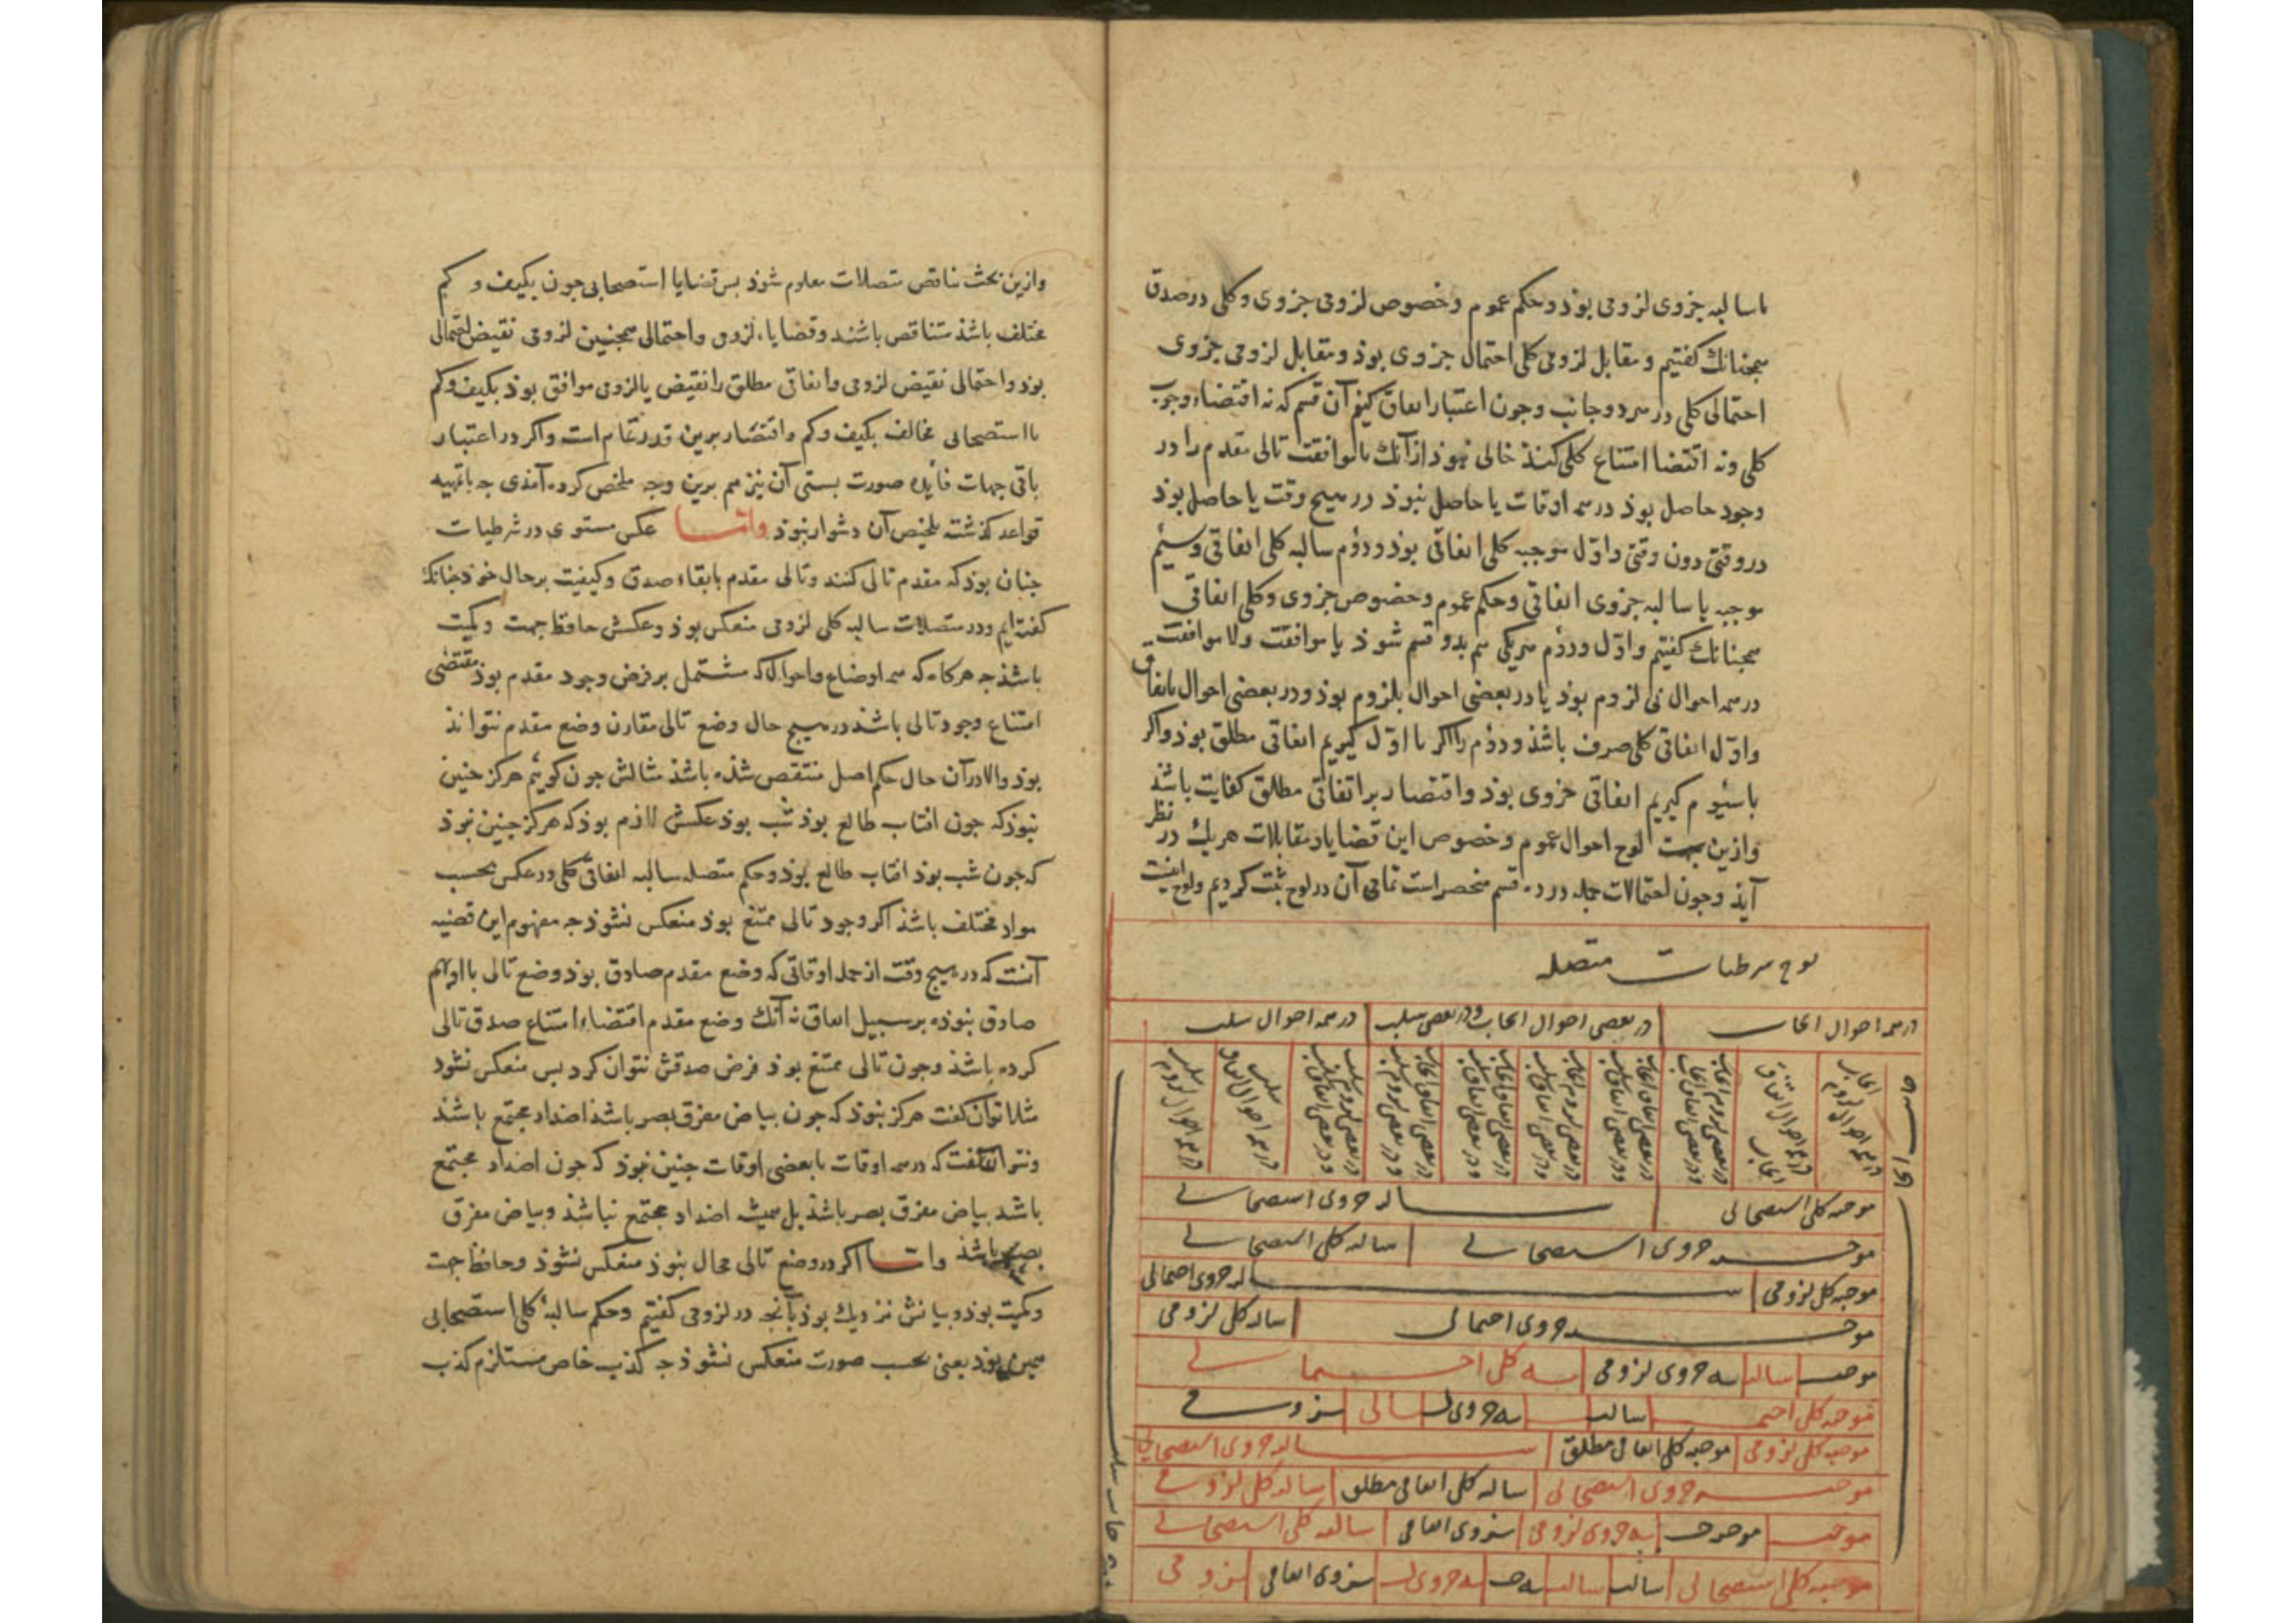 با سالبه جزوی لزومی بوذ و حکم عموم و خصوص لزومی جزوی و کلی در صدق
همجنانك کفتیم و مقابل لزومی کلی احتمال جزوی بوذ و مقابل لزومی جزوی
احتمالی کلی در هر دو جانب و جون اعتبار اتفاق کنیم آن قسم که نه اقتضاء وجوب
کلی و نه اقتضا امتناع کلی کند خالی نبوذ از آنك با موافقت تالی مقدم را در
وجود حاصل بوذ در همه اوقات یا حاصل نبوذ در هیج وقت یا حاصل بوذ
در وقتی دون وقتی و اوّل موجبه کلی اتفاقی بوذ و دوم سالبه کلی اتفاقی و سیم
موجبه یا سالبه جزوی اتفاقی و حکم عموم و خصوص جزوی و کلی اتفاقی
همجنانك کفتیم و اوّل و دوم هر یکی هم بدو قسم شوذ یا موافقت ولا موافقت
در همه احوال بی لزوم بوذ یا در بعضی احوال بلزوم بوذ و در بعضی احوال باتفاق
و اوّل اتفاقی کلی صرف باشذ و دوم را اکر با اوّل کیریم اتفاقی مطلق بوذ و اکر
با سیوم کیریم اتفاقی جزوی بوذ و اقتصار بر اتفاقی مطلق کفایت باشذ
و ازین لوح احوال عموم و خصوص این قضایا و مقابلات هریك در نظر
آیذ و جون احتمالات جمله در ده قسم منحصر است تمامی آن در لوح ثبت کردیم و لوح اینست
لوح شرطیات متصله
در همه احوال ایجاب
در بعضی احوال ایجاب و در بعضی سلب
در همه احوال سلب
در همه احوال لزوم ایجاب
در همه احوال اتفاق ایجاب
در بعضی لزوم ایجاب و در بعضی اتفاق ایجاب
در بعضی اتفاق ایجاب و در بعضی اتفاق سلب
در بعضی لزوم ایجاب و در بعضی اتفاق سلب
در بعضی اتفاق ایجاب و در بعضی لزوم سلب
در بعضی لزوم سلب و در بعضی اتفاق سلب
در همه احوال اتفاق سلب
در همه احوال لزوم سلب
موجبه کلی استصحابی سالبه جزوی استصحابی
موجبه جزوی استصحابی سالبه کلی استصحابی
موجبه کلی لزومی سالبه جزوی احتمالی
موجبه جزوی احتمالی سالبه کلی لزومی
موجبه سالبه جزوی لزومی به کلی احتمالی
موجبه کلی احتمالی سالبه جزوی لزومی
موجبه کلی لزومی موجبه کلی اتفاقی مطلق سالبه جزوی استصحابی
موجبه جزوی استصحابی سالبه کلی اتفاقی مطلق سالبه کلی لزومی
موجبه موجبه به جزوی لزومی جزوی اتفاقی سالبه کلی استصحابی
موجبه کلی استصحابی سالبه جزوی اتفاقی لزومی
و ازین بحث تناقض متصلات معلوم شوذ بس قضایا استصحابی جون بکیف و کم
مختلف باشذ متناقض باشند و قضایا لزومی و احتمالی همجنین لزومی نقیض احتمالی
بوذ و احتمالی نقیض لزومی و اتفاقی مطلق را نقیض یا لزومی موافق بوذ بکیف و کم
با استصحابی مخالف بکیف و کم و اقتصار برین قدر تمام است و اکر در اعتبار
باقی جهات فایده صورت بستی آن نیز هم برین وجه ملخص کرده آمذی جه باتهیه
قواعد کذشته تلخیص آن دشوار نبوذ واما عکس مستوی در شرطیات
جنان بوذ که مقدم تالی کنند و تالی مقدم بابقاء صدق و کیفیت بر حال خوذ جنانك
کفته ایم و در متصلات سالبه کلی لزومی منعکس بوذ و عکسش حافظ جهت و کمیت
باشذ جه هرکاه که همه اوضاع و احوال که مشتمل بر فرض وجود مقدم بوذ مقتضی
امتناع وجود تالی باشذ در هیج حال وضع تالی مقارن وضع مقدم نتواند
بوذ والا در آن حال حکم اصل منتقض شذه باشذ مثالش جون کویم هرکز جنین
نبوذ که جون افتاب طالع بوذ شب بوذ عکسش لازم بوذ که هرکز جنین نبوذ
که جون شب بوذ افتاب طالع بوذ و حکم متصله سالبه اتفاقی کلی در عکس بحسب
مواد مختلف باشذ اکر وجود تالی ممتنع بوذ منعکس نشوذ جه مفهوم این قضیه
آنست که در هیج وقت از جمله اوقاتی که وضع مقدم صادق بوذ وضع تالی با او بهم
صادق نبوذه بر سبیل اتفاق نه آنك وضع مقدم اقتضاء امتناع صدق تالی
کرده باشذ و جون تالی ممتنع بوذ فرض صدقش نتوان کرد بس منعکس نشود
مثلا توان کفت هرکز نبوذ که جون بیاض مفرق بصر باشذ اضداد مجتمع باشند
و نتوان کفت که در همه اوقات یا بعضی اوقات جنین نبوذ که جون اضداد مجتمع
باشد بیاض مفرق بصر باشذ بل همیشه اضداد مجتمع نباشذ و بیاض مفرق
بصر باشذ واما اکر در وضع تالی محال نبوذ منعکس نشوذ و حافظ جهت
و کمیت بوذ و بیانش نزدیك بوذ بآنجه در لزومی کفتیم و حکم سالبه کلی استصحابی
همین بوذ یعنی بحسب صورت منعکس نشوذ جه کذب خاص مستلزم کذب